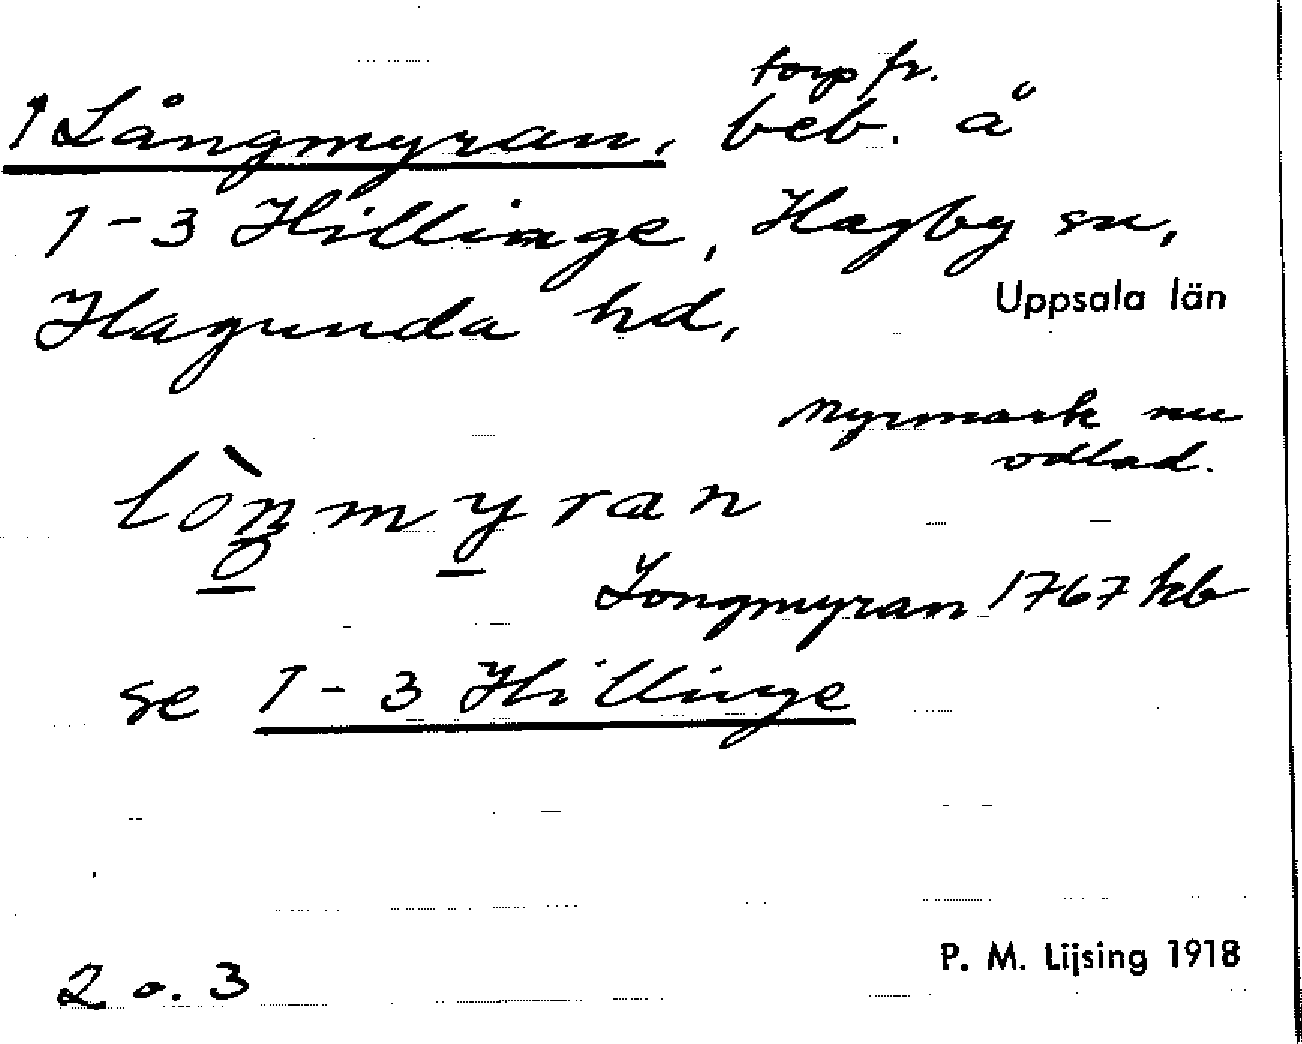 torp fr.
1 Långmyran, beb. å
1-3 Hillinge, Hagby sn,
Hagunda hd, Uppsala län
Myrmark nu
odlad.
lòŋmyran
Longmyran 1767 kb
se 1-3 Hillinge
2 o. 3
P. M. Lijsing 1918